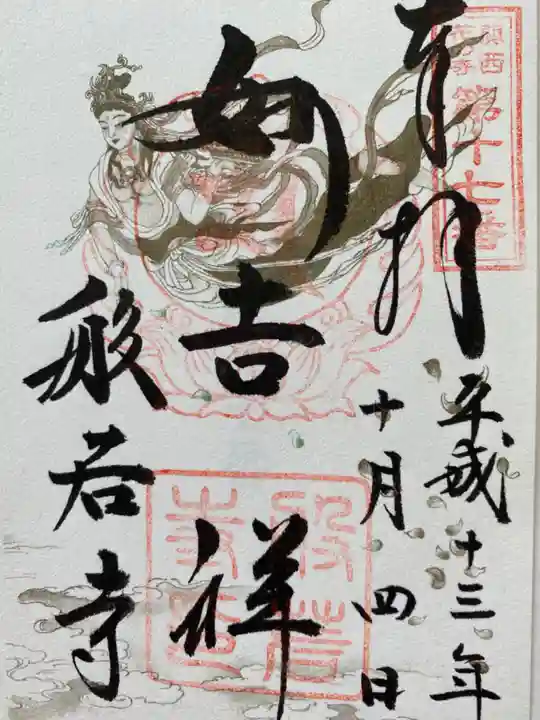 関西
花の寺
第十七番
奉拝
平成十三年
十月四日
妙吉祥
般若寺